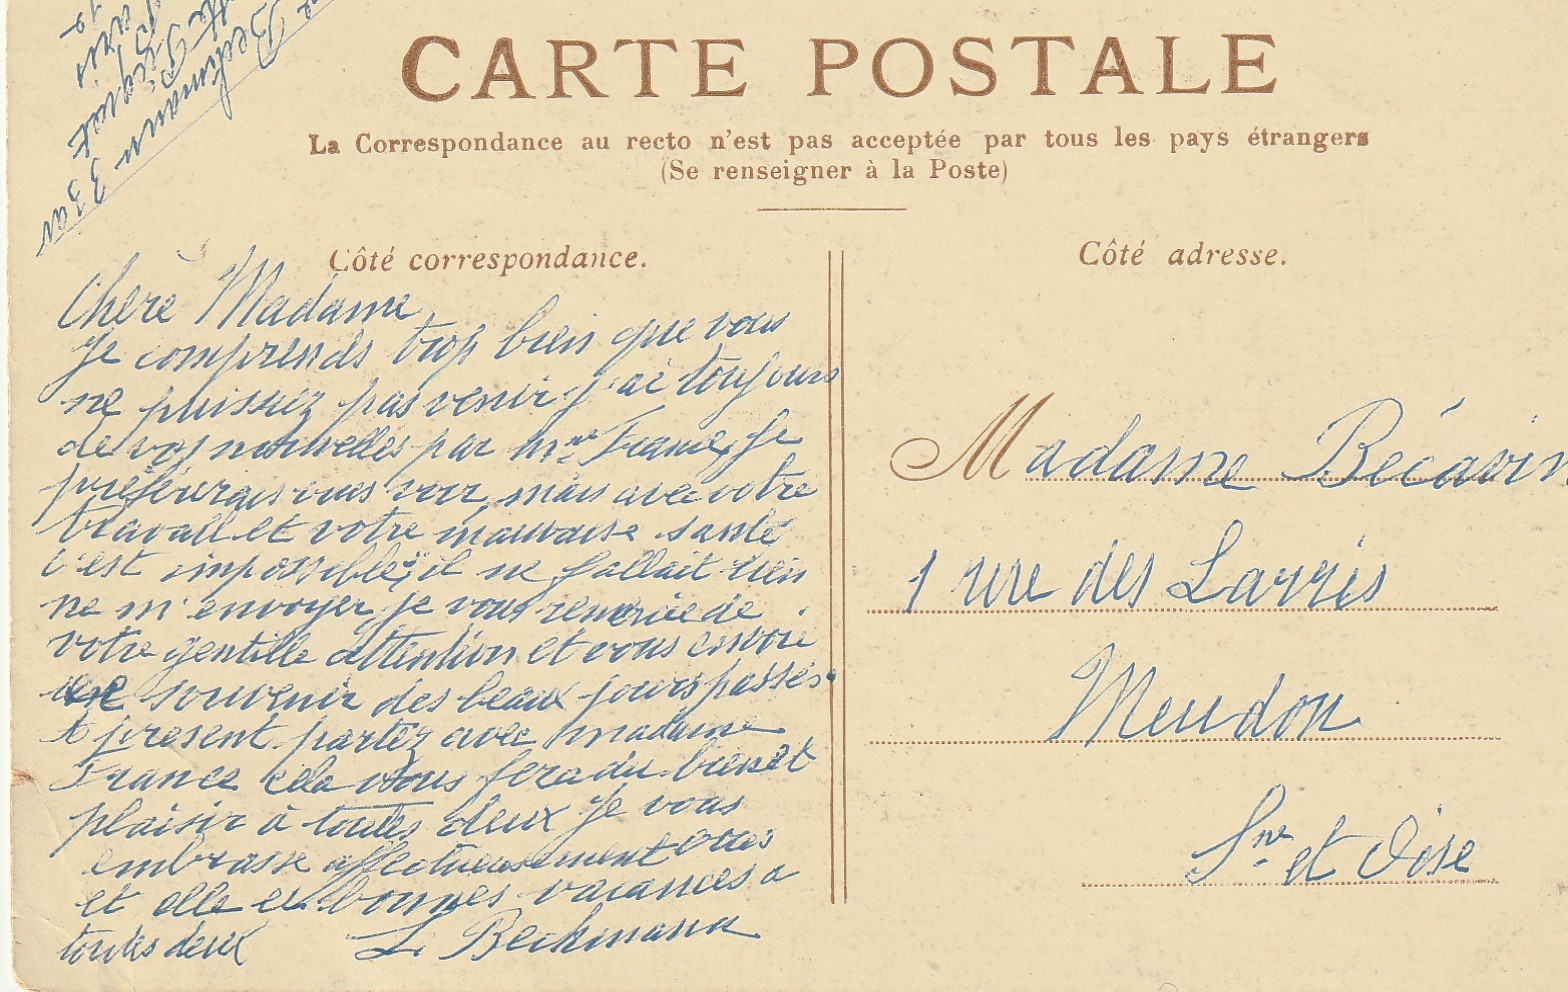 Beckmann 33 av
Picquet
Paris
19
CARTE POSTALE
La Correspondance au recto n'est pas acceptée par tous les pays étrangers
(Se renseigner à la Poste)
Côté correspondance.
Chère Madame
Je comprends trop bien que vous
ne puissiez pas venir j'ai toujours
de vos nouvelles par Mme France, je
préférerais vous voir, mais avec votre
travail et votre mauvaise santé
c'est impossible; il ne fallait rien
ne m'envoyer, je vous remercie de
votre gentille attention et vous envoie
un souvenir des beaux jours passés.
A présent partez avec madame
France cela vous fera du bien et
plaisir à toutes deux Je vous
embrasse affectueusement vous
et elle et bonnes vacances a
toutes deux L. Beckmann
Côté adresse.
Madame Bécavin
1 rue des Larris
Meudon
Sne et Oise